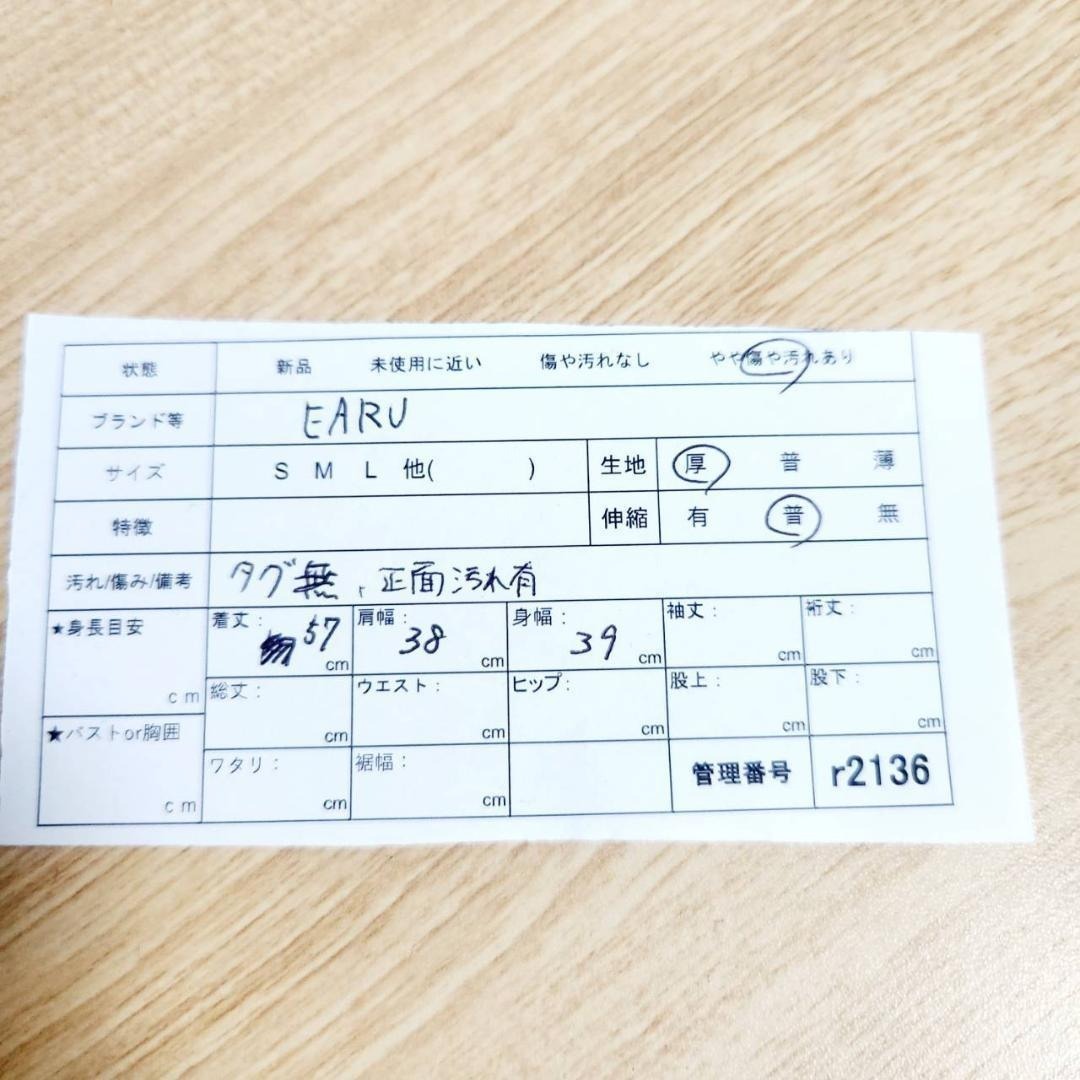 状態 新品 未使用に近い 傷や汚れなし やや傷や汚れあり
ブランド等 EARU
サイズ S M L 他( ) 生地 厚 普 薄
特徴 伸縮 有 普 無
汚れ/傷み/備考 タグ無、正面汚れ有
★身長目安 cm 着丈: 57 cm 肩幅: 38 cm 身幅: 39 cm 袖丈: cm 裄丈: cm
総丈: cm ウエスト: cm ヒップ: cm 股上: cm 股下: cm
★バストor胸囲 cm ワタリ: cm 裾幅: cm 管理番号 r2136